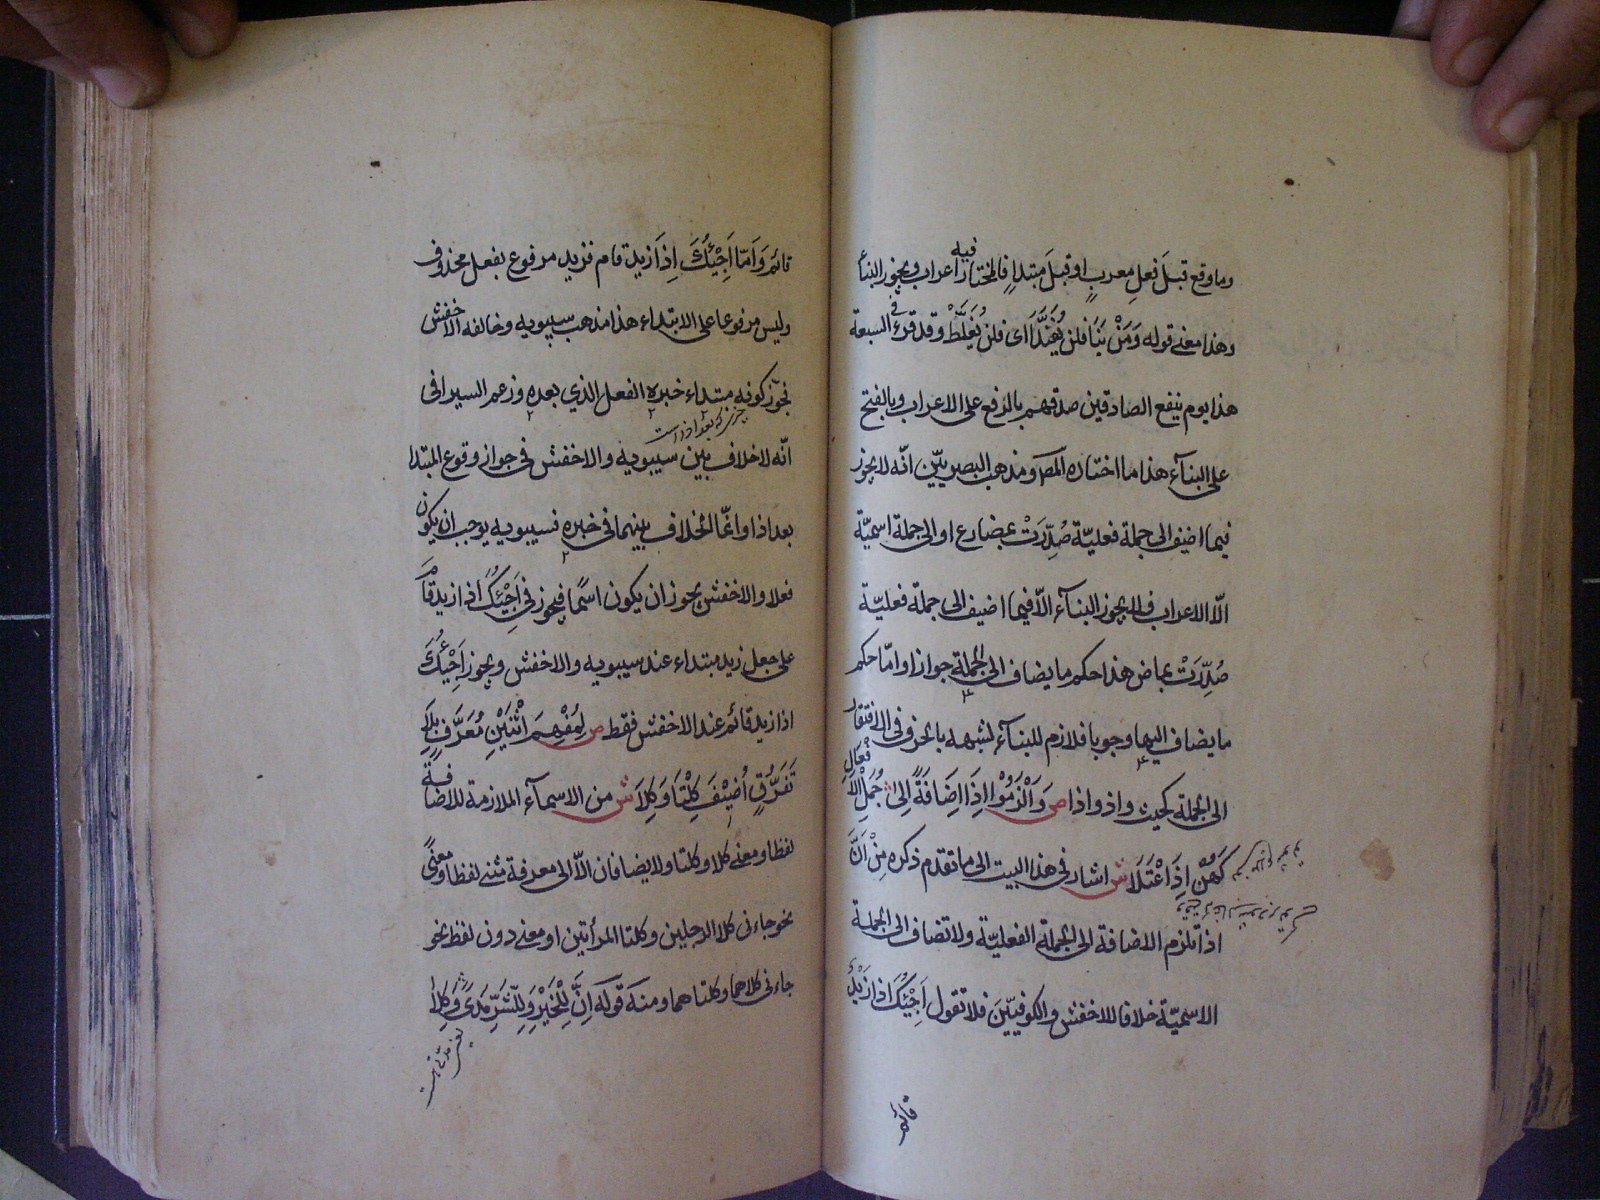 وما وقع قبلَ فعلٍ معربٍ او قبلَ مبتداٍ فالمختار فيه اعراب ويجوز البناءُ
وهذا معنى قوله وَمَنْ بَنَا فلن يُفَنَّدَا اى فلن يُغَلَّطْ وقد قرء في السبعة
هذا يوم ينفع الصادقين صدقهم بالرفع على الاعراب وبالفتح
على البنآء هذا ما اختاره المص ومذهب البصريّين انّه لا يجوز
فيما اضيف الى جملة فعليّة صُدِّرَتْ بمضارع او الى جملة اسميّة
الّا الاعراب ولا يجوز البنآء الّا فيما اضيف الى جملة فعليّة
صُدِّرَتْ بماض هذا حكم ما يضاف الى الجملة جوازا وامّا حكم
ما يضاف اليها وجوبا فلازم للبنآء لشبهه بالحرف في الافتقار
الى الجملة كحيث واذ واذا ص وَاَلْزَمُوْا اِذَا اِضَافَةً اِلىٰ جُمَلِ الْاَفْعَالِ
كَهُنْ اِذَا عْتَلَا ش اشار في هذا البيت الى ما تقدم ذكره مِنْ اَنَّ
اذا تلزم الاضافة الى الجملة الفعليّة ولا تضاف الى الجملة
الاسميّة خلافا للاخفش والكوفيّين فلا تقول اَجِيْئُكَ اذا زَيْدٌ
قائم
قائم وَاَمّا اَجِيْئُكَ اِذَا زيد قام فزيد مرفوع بفعل محذوف
وليس مرفوعا على الابتداء هذا مذهب سيبويه وخالفه الاخفش
فجوّز كونه مبتداء خبره الفعل الذي بعده وزعم السيرافى
انّه لا خلاف بين سيبويه والاخفش فى جواز وقوع المبتدا
بعد اذا وانّما الخلاف بينهما فى خبره فسيبويه يوجب ان يكون
فعلا والاخفش يجوز ان يكون اسمًا فيجوز في اَجِيْئُكَ اذا زيد قام
على جعل زيد مبتداء عند سيبويه والاخفش ويجوز اَجِيْئُكَ
اذا زيد قائم عند الاخفش فقط ص لِمُفْهِمِ اثْنَيْنِ مُعَرَّفٍ بِلَا
تَفَرُّقٍ اُضِيْفَ كِلْتَا وَكِلَا ش من الاسمآء الملازمة للاضافة
لفظا ومعنى كلا وكلتا ولا يضافان الّا الى معرفة مثنى لفظا ومعنًى
نحو جاءنى كلا الرجلين وكلتا المرأتين او معنى دون لفظ نحو
جاءنى كلاهما وكلتاهما ومنه قوله اِنَّ لِلْخَيْرِ وَلِلشَّرِّ مَدًى وَكِلَا